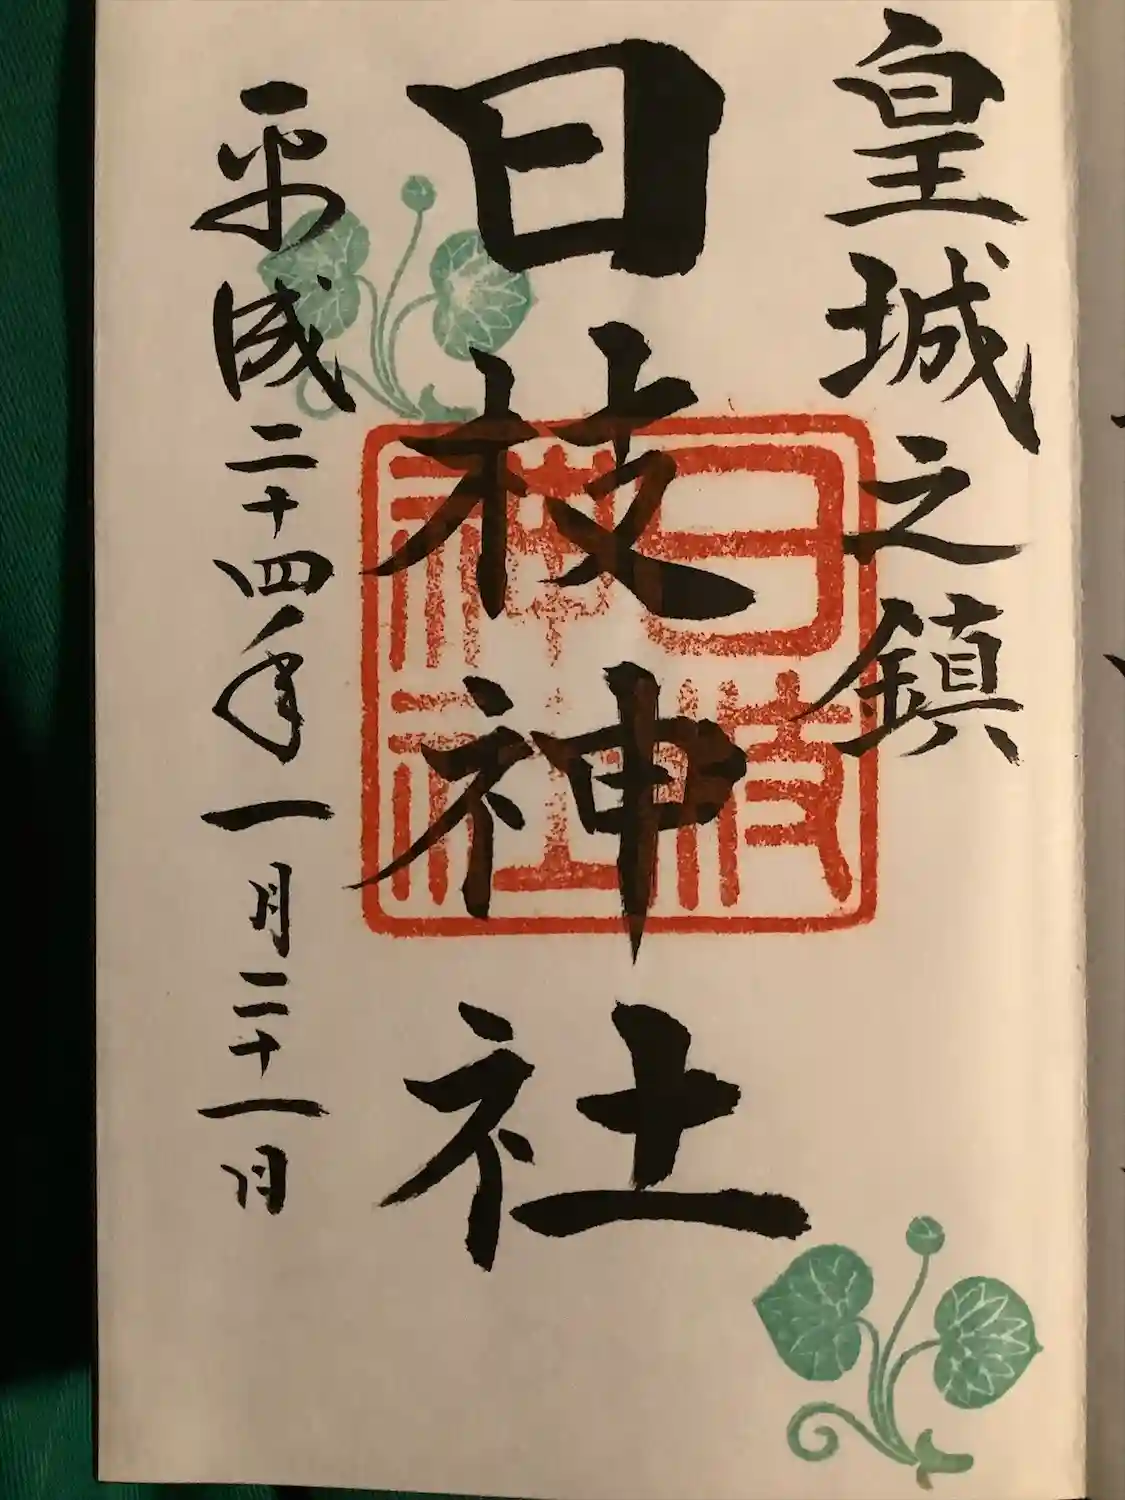 皇城之鎮
日枝神社
日枝
神社
平成二十四年一月二十一日